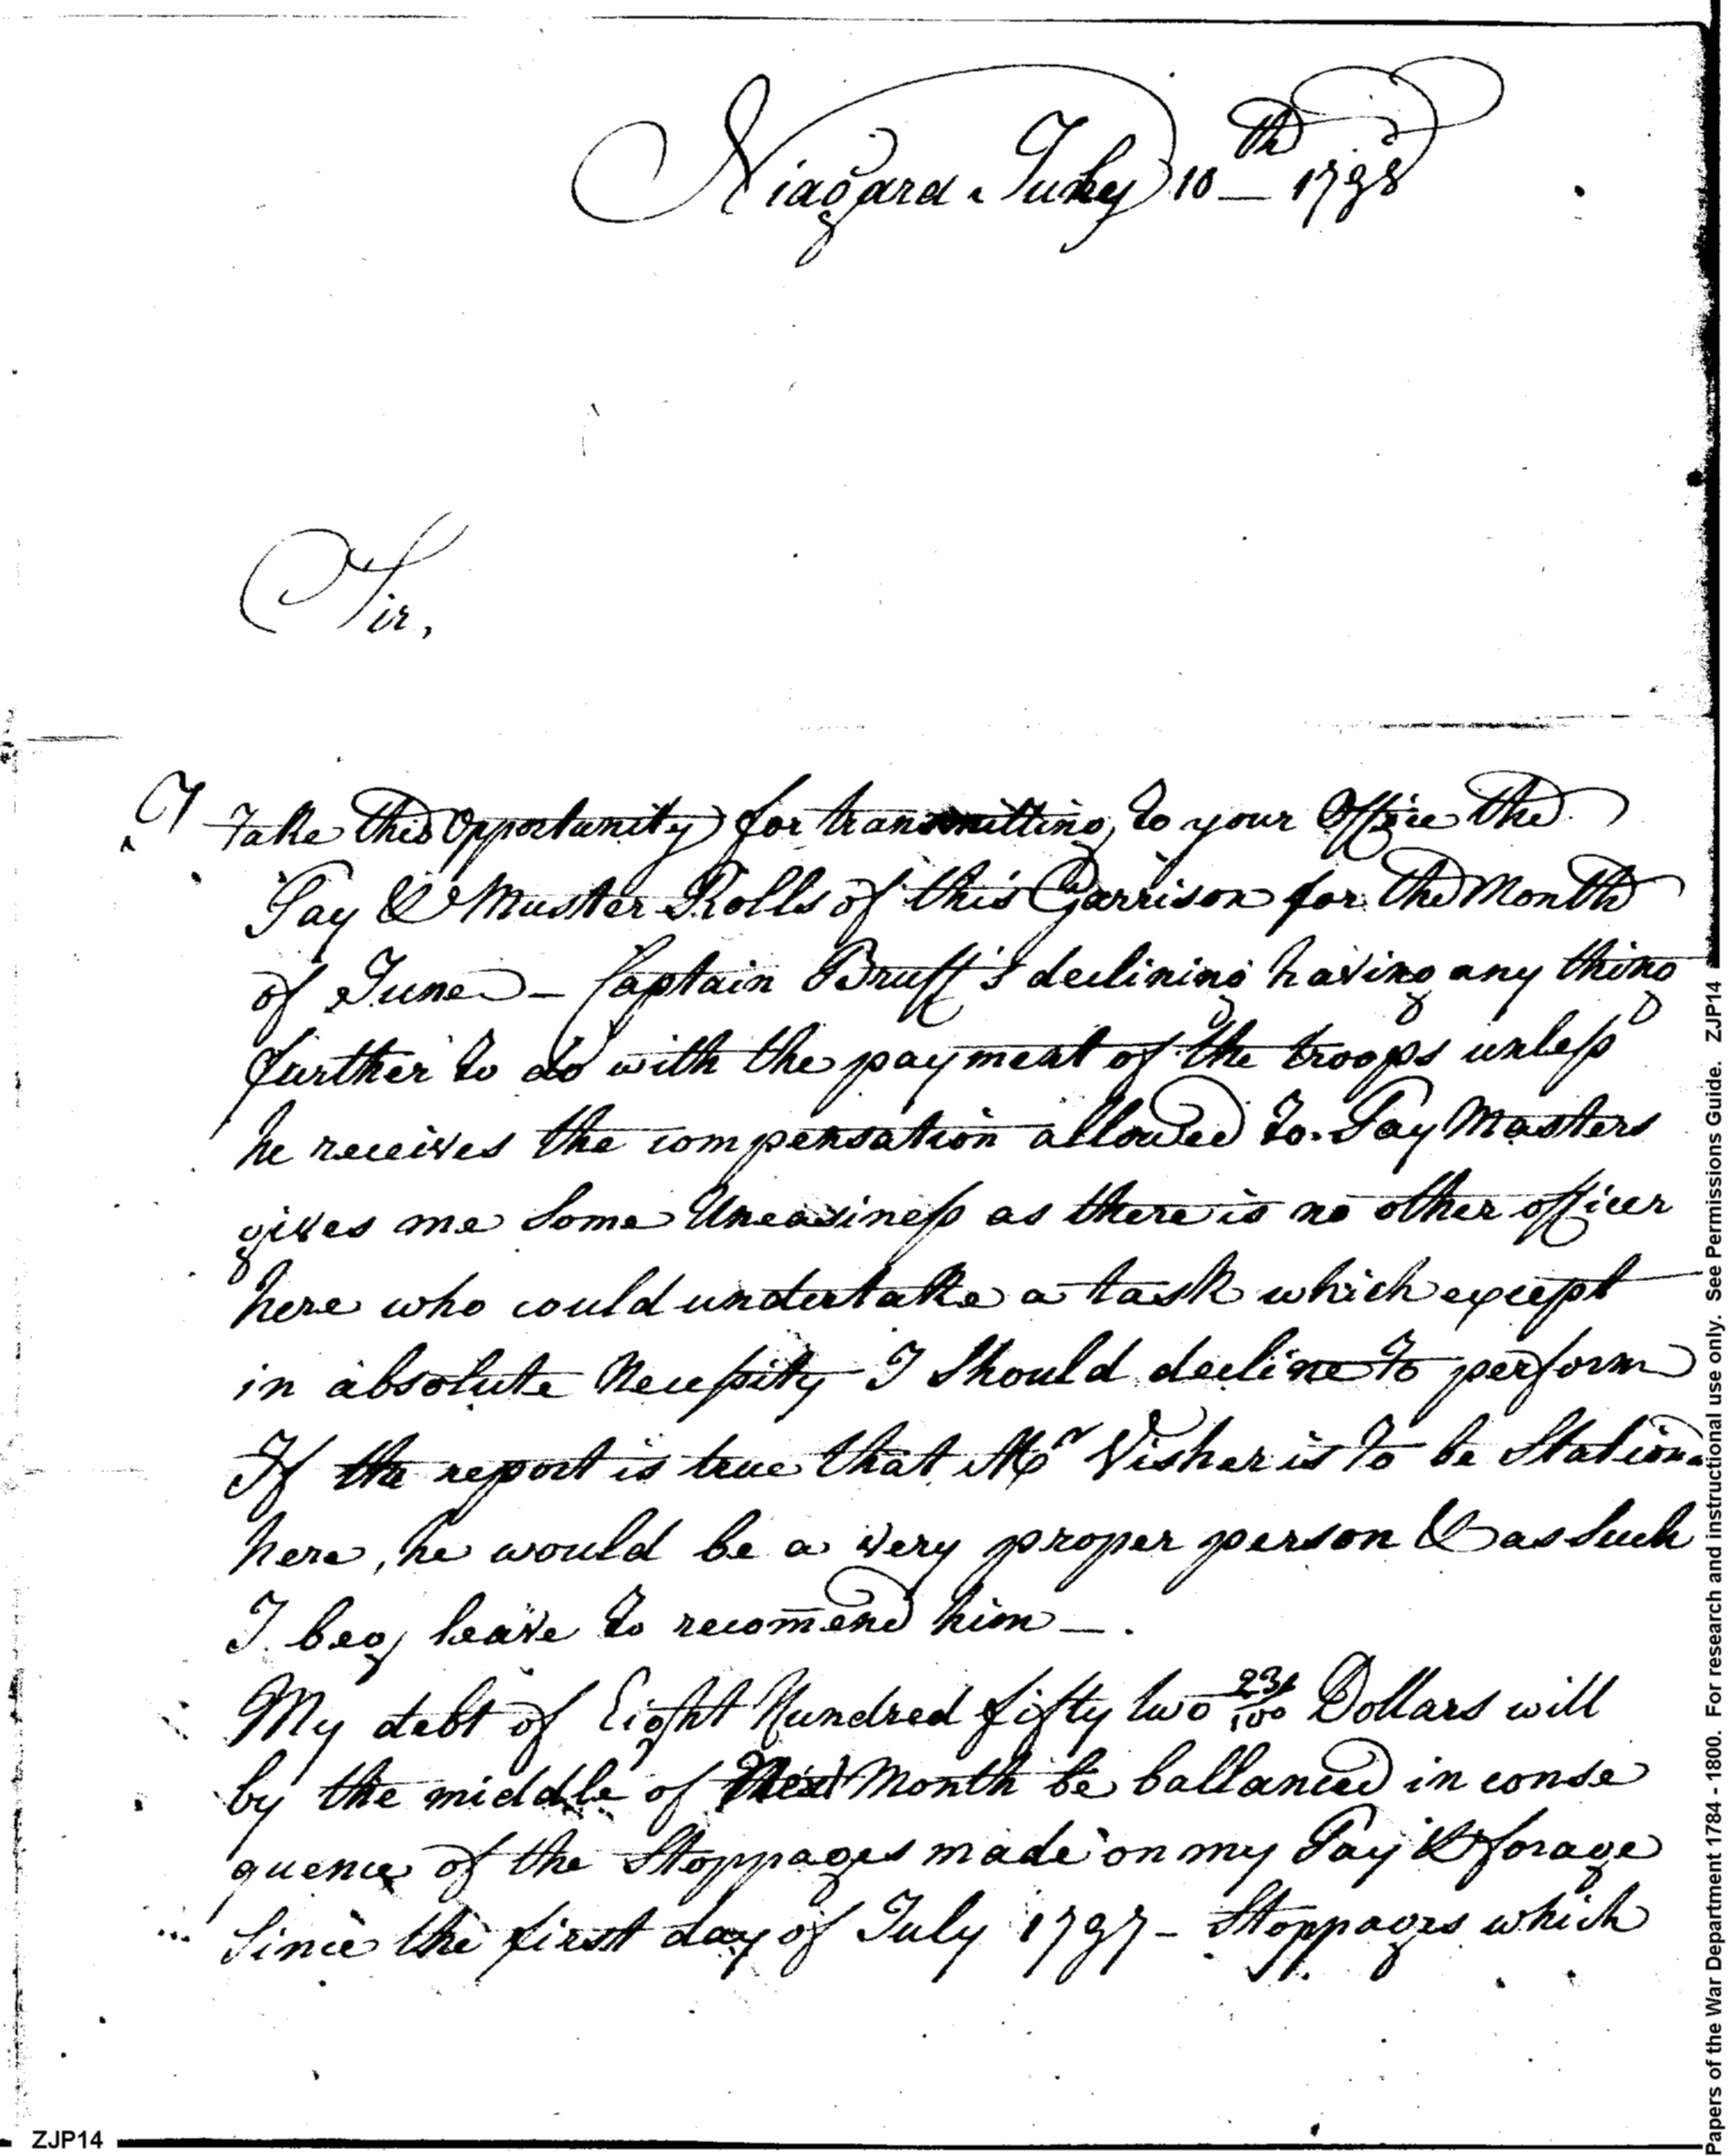 Niagara July 10th 1798
Sir,
I take this Opportunity for transmitting to your Office the
Pay & Muster Rolls of this Garrison for the Month
of June — Captain Bruff's declining having any thing
further to do with the payment of the troops unless
he receives the compensation allowed to Pay Masters
gives me some Uneasiness as there is no other officer
here who could undertake a task which except
in absolute Necessity I should decline to perform
If the report is true that Mr Visher is to be Station
here, he would be a very proper person & as such
I beg leave to recomend him —.
My debt of Eight Hundred fifty two 23/100 Dollars will
by the middle of Next Month be ballanced in conse
quence of the Stoppages made on my Pay & forage
Since the first day of July 1797 — Stoppages which
ZJP14
Papers of the War Department 1784 - 1800. For research and instructional use only. See Permissions Guide. ZJP14